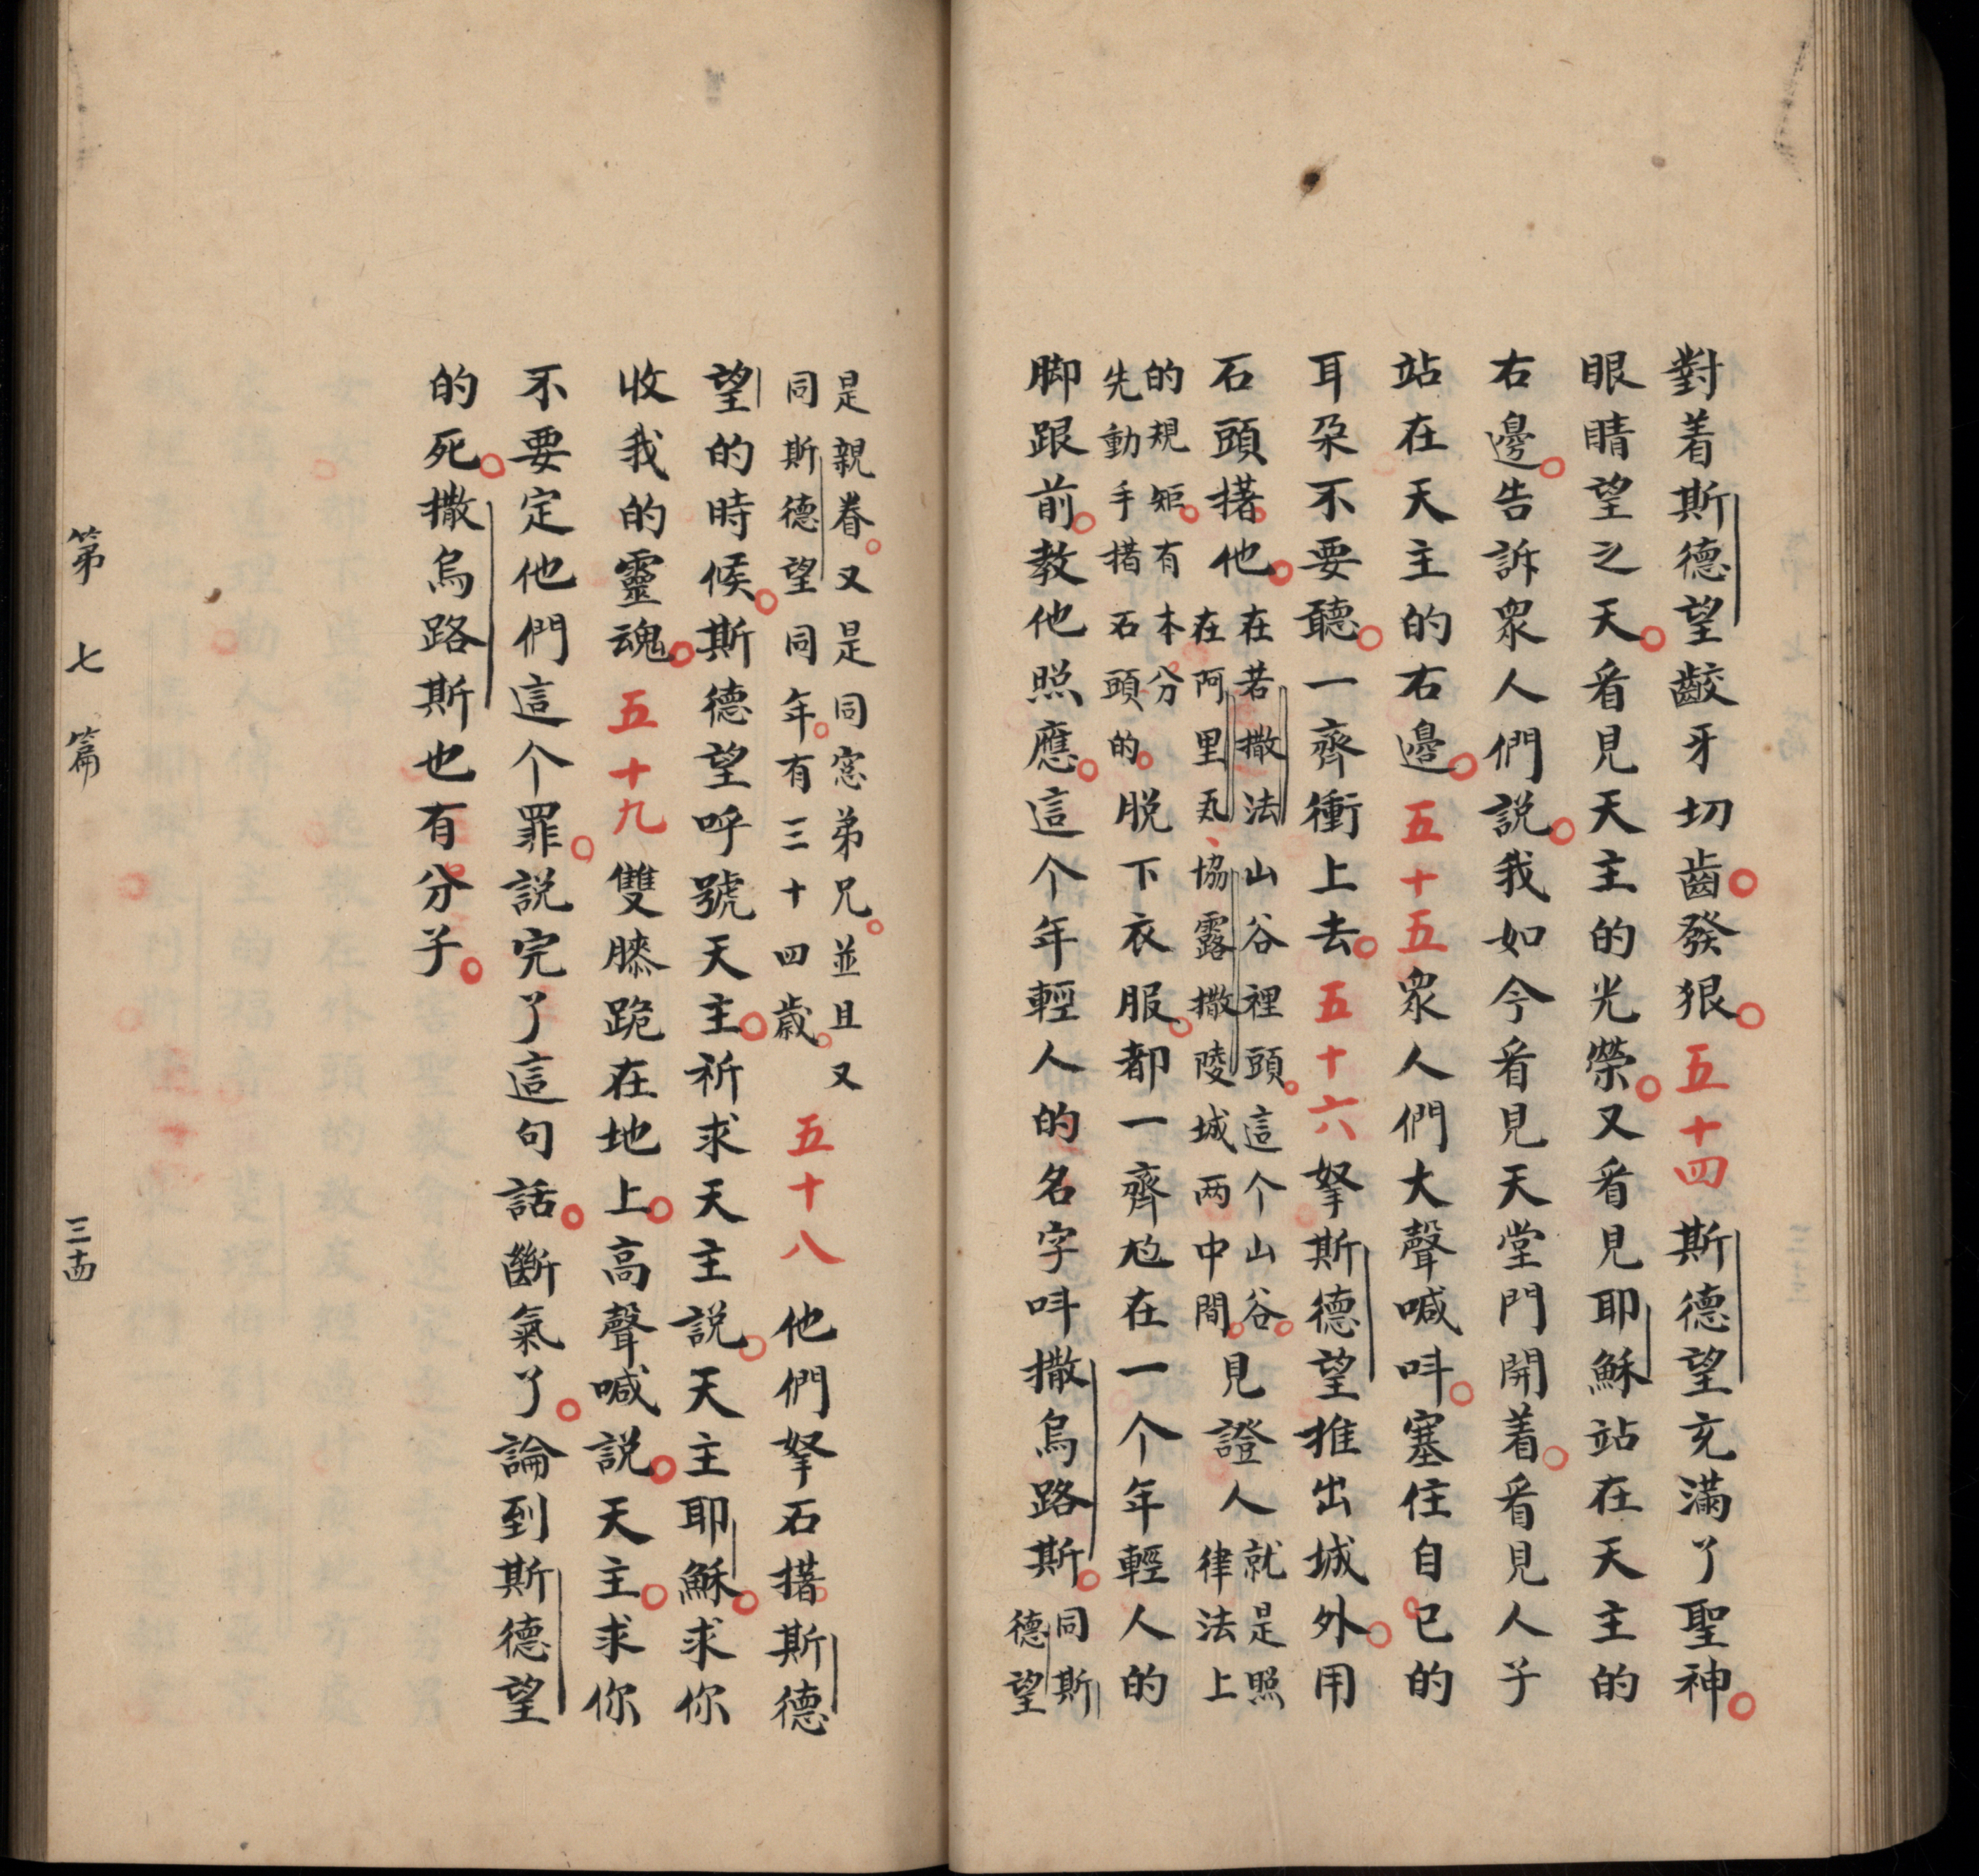 對着斯德望齩牙切齒。發狠。五十四斯德望充滿了聖神。
眼睛望之天。看見天主的光榮。又看見耶穌站在天主的
右邊。告訴眾人們說。我如今看見天堂門開着。看見人子
站在天主的右邊。五十五眾人們大聲喊呌。塞住自己的
耳朶不要聽。一齊衝上去。五十六拏斯德望推出城外。用
石頭撦他。
在若撒法山谷裡頭。這个山谷。
在阿里瓦、協露撒陵城两中間。
見證人
就是照
律法上
的規矩。有本分
先動手撦石頭的。
脱下衣服。都一齊尅在一个年輕人的
脚跟前。教他照應。這个年輕人的名字呌撒烏路斯。
同斯
德望
是親眷。又是同窓弟兄。並且又
同斯德望同年。有三十四歲。
五十八他們拏石撦斯德
望的時候。斯德望呼號天主。祈求天主說。天主耶穌。求你
收我的靈魂。五十九雙膝跪在地上。高聲喊説。天主。求你
不要定他們這个罪。説完了這句話。斷氣了。論到斯德望
的死。撒烏路斯也有分子。
第七篇
三十四